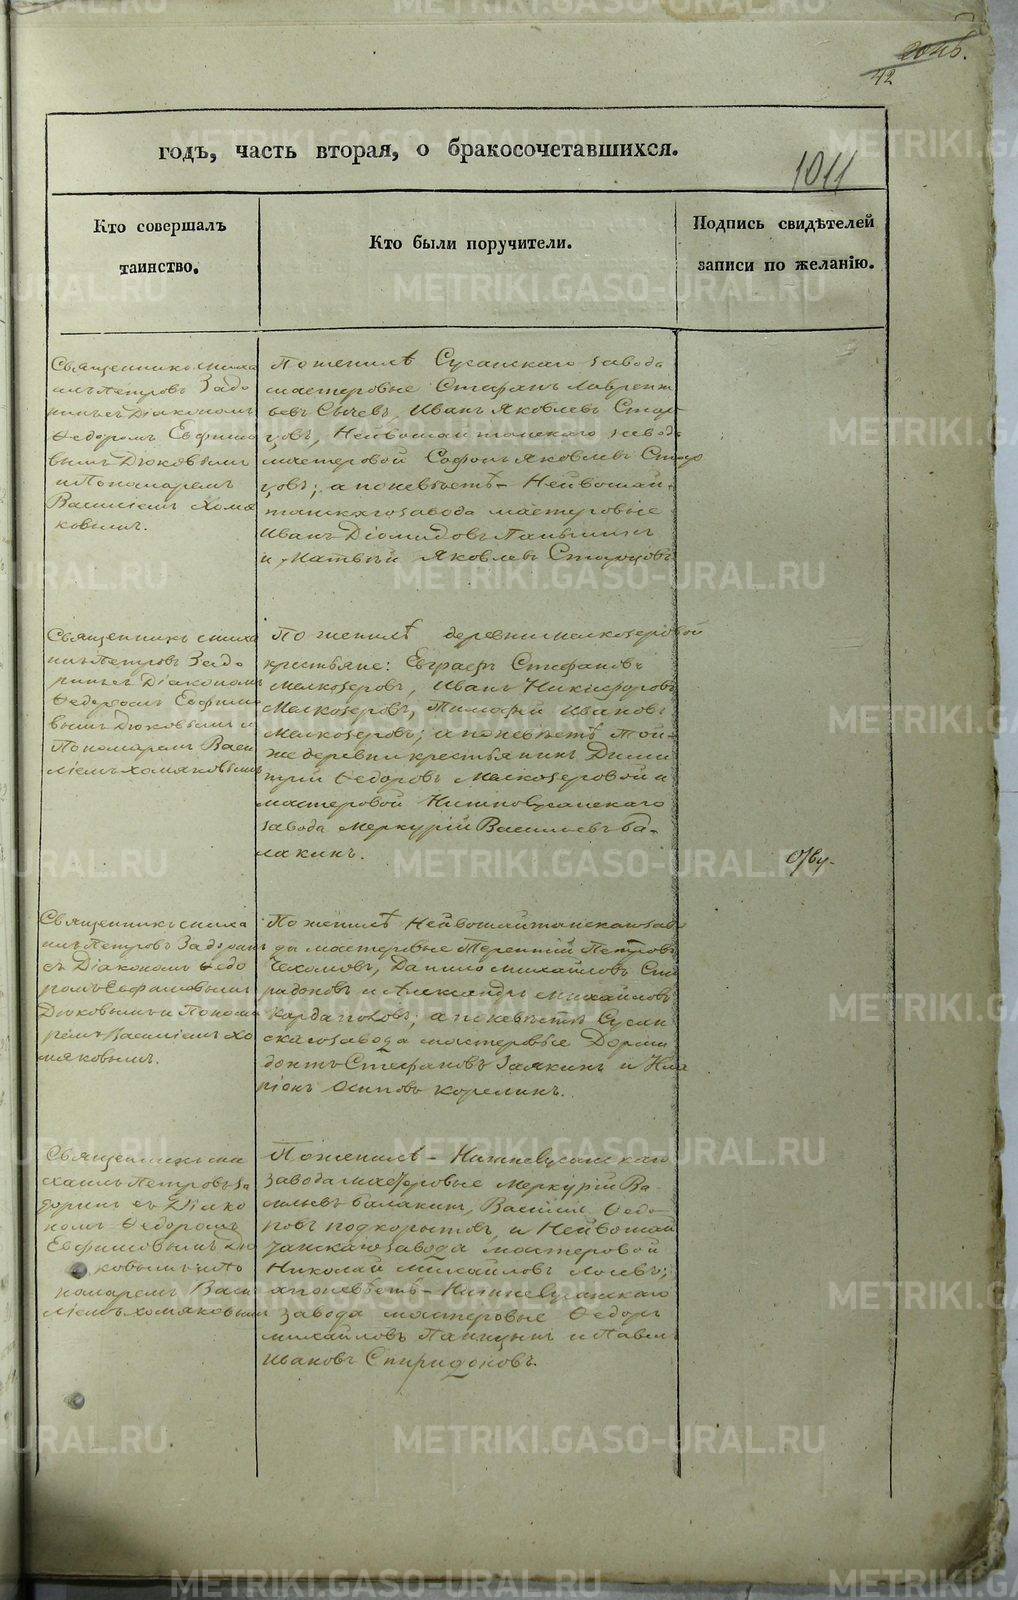 42
годъ, часть вторая, о бракосочетавшихся.
1011
Кто совершалъ
таинство.
Кто были поручители.
Подпись свидѣтелей
записи по желанію.
Священникъ Миха
илъ Петровъ Задо
ринъ съ Діакономъ
Ѳедоромъ Евфимо
вымъ Дюковымъ
и Пономаремъ
Василіемъ Хомя
ковымъ.
По женихѣ Сусанскаго завода
мастеровые Стефанъ Лаврентьевъ Сычевъ, Иванъ Яковлевъ Старцовъ, Нейвошайтанскаго завода
мастеровой Софонъ Яковлевъ Стар
цовъ; а по невѣстѣ – Нейвошай-
танскаго завода мастеровые
Иванъ Діомидовъ Паньшинъ
и Матвѣй Яковлевъ Старцовъ
Священникъ Миха
илъ Петровъ Задо
ринъ съ Діакономъ
Ѳедоромъ Евфимо
вымъ Дюковымъ и
Пономаремъ Васи
ліемъ Хомяковымъ
По женихѣ деревни Мелкозеровой
крестьяне: Евграфъ Стефановъ
Мелкозеровъ, Иванъ Никифоровъ
Мелкозеровъ, Тимофей Ивановъ
Мелкозеровъ; а по невѣстѣ Той-
же деревни крестьянинъ Дими
трій Ѳедоровъ Мелкозеровъ и
мастеровой Нижнесусанскаго
завода Меркурій Васильевъ Ба-
лакинъ.
Священникъ Миха
илъ Петровъ Задоринъ
съ Діакономъ Ѳедо
ромъ Евфимовымъ
Дюковымъ и Понома
ремъ Василіемъ Хо
мяковымъ.
По женихѣ Нейвошайтанскаго заво
да мастеровые Терентій Петровъ
Чехомовъ, Данило Михайловъ Спи
ридоновъ и Александръ Михайловъ
Кардаполовъ; а по невѣстѣ Сусан
скаго завода мастеровые Дорми
донтъ Стефановъ Заякинъ и Ила
ріонъ Осиповъ Корелинъ.
Священникъ Ми
хаилъ Петровъ За
доринъ съ Діако
номъ Ѳедоромъ
Евфимовымъ Дю
ковымъ и По
номаремъ Васи
ліемъ Хомяковымъ
По женихѣ – Нижнесусанскаго
завода мастеровые Меркурій Ва-
сильевъ Балакинъ, Василій Ѳедо-
ровъ Подкорытовъ, и Нейвошай
танскаго завода мастеровой
Николай Михайловъ Лосевъ;
а по невѣстѣ – Нижнесусанскаго
завода мастеровые Ѳедоръ
Михайловъ Панкинъ и Павелъ
Ивановъ Спиридоновъ.
METRIKI.GASO-URAL.RU